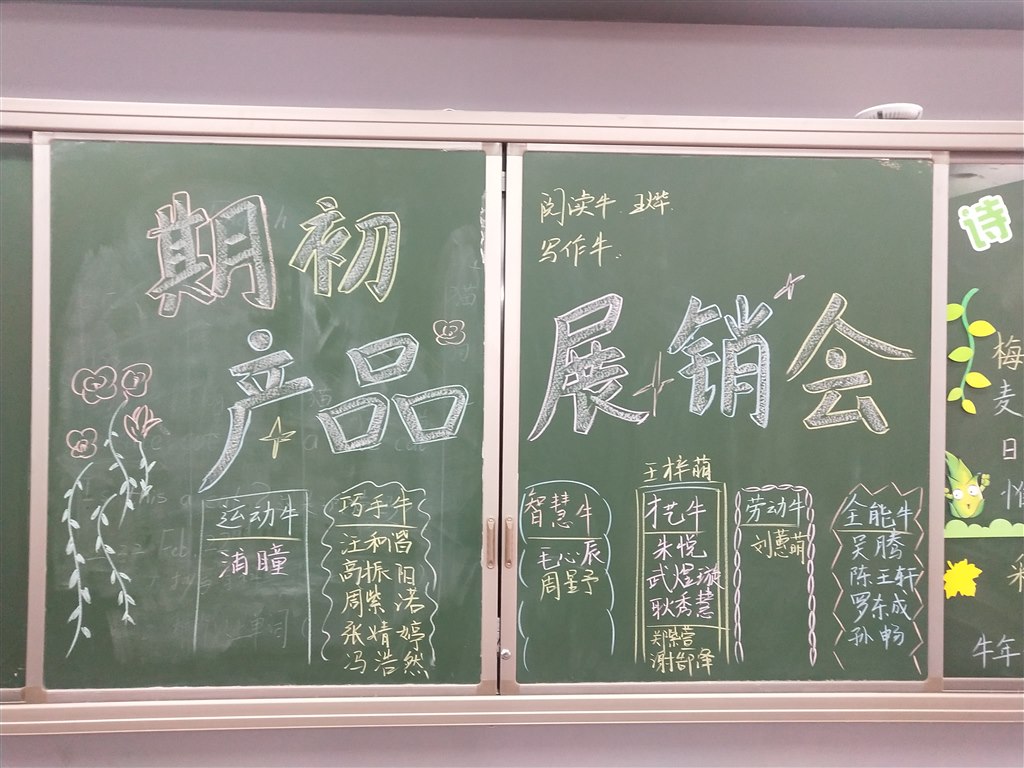 期初
产品
运动牛
满瞳
巧手牛
汪和谐
高振阳
周紫诺
张婧婷
冯浩然
阅读牛 王烨
写作牛
展销会
智慧牛
毛心辰
周星予
王梓萌
才艺牛
朱悦
武煜璇
耿秀慧
郑紫萱
谢郜泽
劳动牛
刘慧萌
全能牛
吴腾
陈王轩
罗东成
孙畅
诗
梅
麦
日
惟
牛年